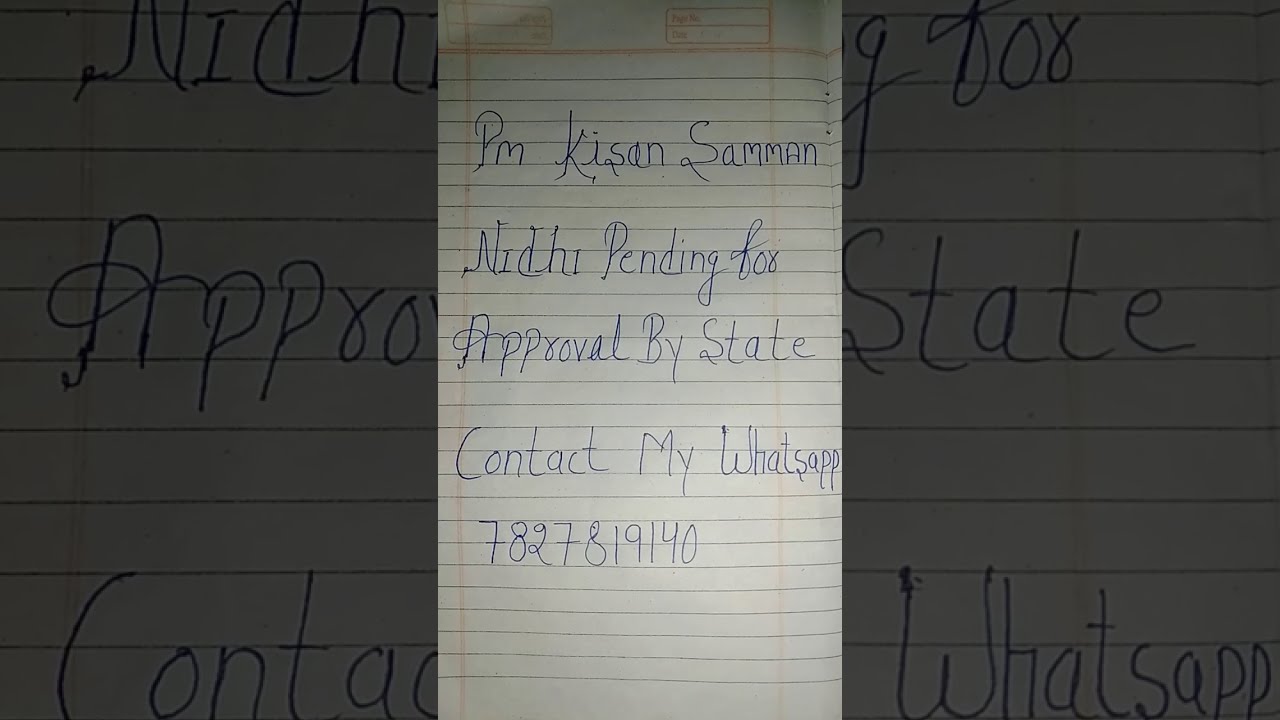 Page No.
Date
Pm Kisan Samman
Nidhi Pending for
Approval By State
Contact My Whatsapp
7827819140